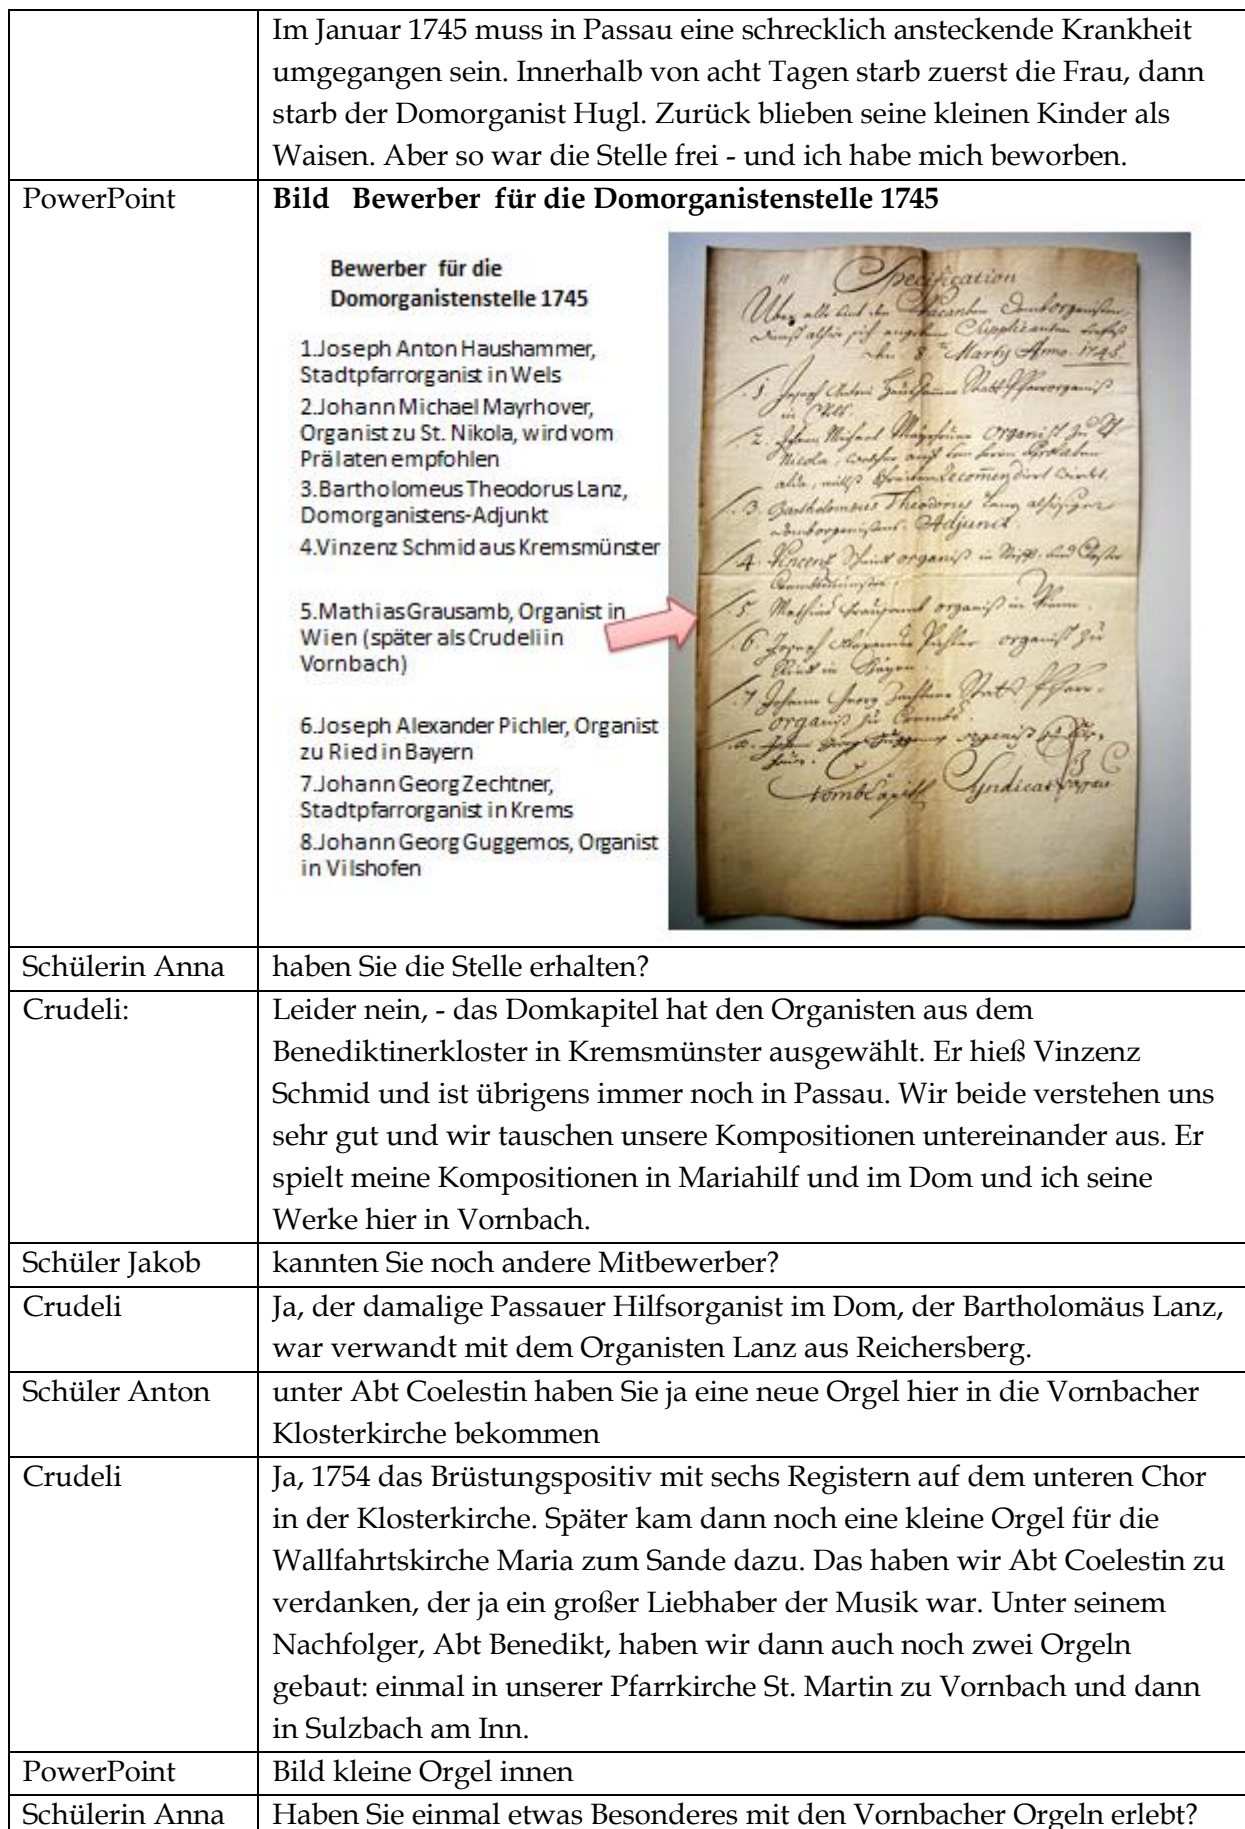 Im Januar 1745 muss in Passau eine schrecklich ansteckende Krankheit
umgegangen sein. Innerhalb von acht Tagen starb zuerst die Frau, dann
starb der Domorganist Hugl. Zurück blieben seine kleinen Kinder als
Waisen. Aber so war die Stelle frei - und ich habe mich beworben.
PowerPoint
Bild Bewerber für die Domorganistenstelle 1745
Bewerber für die
Domorganistenstelle 1745
1.Joseph Anton Haushammer,
Stadtpfarrorganist in Wels
2.Johann Michael Mayrhover,
Organist zu St. Nikola, wird vom
Prälaten empfohlen
3.Bartholomeus Theodorus Lanz,
Domorganistens-Adjunkt
4.Vinzenz Schmid aus Kremsmünster
5.Mathias Grausamb, Organist in
Wien (später als Crudeli in
Vornbach)
6.Joseph Alexander Pichler, Organist
zu Ried in Bayern
7.Johann Georg Zechtner,
Stadtpfarrorganist in Krems
8.Johann Georg Guggemos, Organist
in Vilshofen
Specification
Martij Anno 1745.
1.
2. Johann Michael organist zu St
Nicola
3. Bartholomeus Theodorus
Adjunct.
4. organist in
5 Mathias organist in Wienn.
6. Joseph Pichler organist zu
7 Johann Georg
organist zu
Syndicat
Schülerin Anna
haben Sie die Stelle erhalten?
Crudeli:
Leider nein, - das Domkapitel hat den Organisten aus dem
Benediktinerkloster in Kremsmünster ausgewählt. Er hieß Vinzenz
Schmid und ist übrigens immer noch in Passau. Wir beide verstehen uns
sehr gut und wir tauschen unsere Kompositionen untereinander aus. Er
spielt meine Kompositionen in Mariahilf und im Dom und ich seine
Werke hier in Vornbach.
Schüler Jakob
kannten Sie noch andere Mitbewerber?
Crudeli
Ja, der damalige Passauer Hilfsorganist im Dom, der Bartholomäus Lanz,
war verwandt mit dem Organisten Lanz aus Reichersberg.
Schüler Anton
unter Abt Coelestin haben Sie ja eine neue Orgel hier in die Vornbacher
Klosterkirche bekommen
Crudeli
Ja, 1754 das Brüstungspositiv mit sechs Registern auf dem unteren Chor
in der Klosterkirche. Später kam dann noch eine kleine Orgel für die
Wallfahrtskirche Maria zum Sande dazu. Das haben wir Abt Coelestin zu
verdanken, der ja ein großer Liebhaber der Musik war. Unter seinem
Nachfolger, Abt Benedikt, haben wir dann auch noch zwei Orgeln
gebaut: einmal in unserer Pfarrkirche St. Martin zu Vornbach und dann
in Sulzbach am Inn.
PowerPoint
Bild kleine Orgel innen
Schülerin Anna
Haben Sie einmal etwas Besonderes mit den Vornbacher Orgeln erlebt?